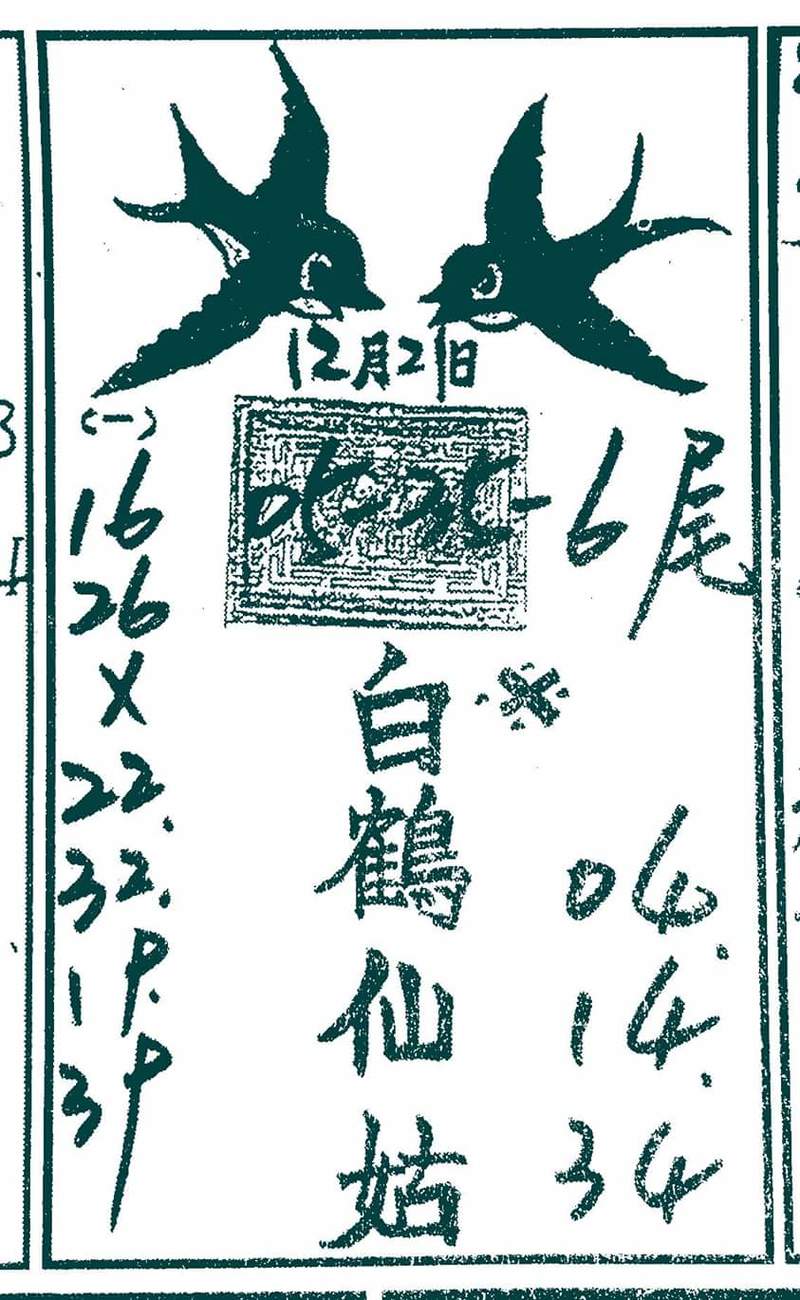 12月21日
(一)
6尾
16
26
X
22.
32.
19.
39
白鶴仙姑
※
04.
14.
34